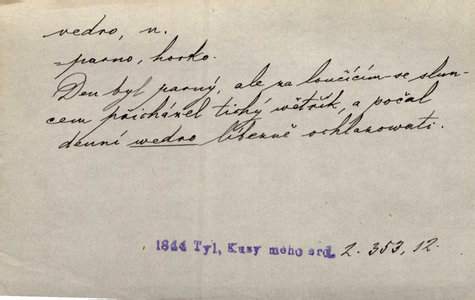 vedro, n.
= parno, horko.
Den byl parný, ale za loučícím se slun-
cem přicházel tichý větřík, a počal
denní wedro líbezně ochlazowati.
1844 Tyl, Kusy mého srd. 2. 353, 12.